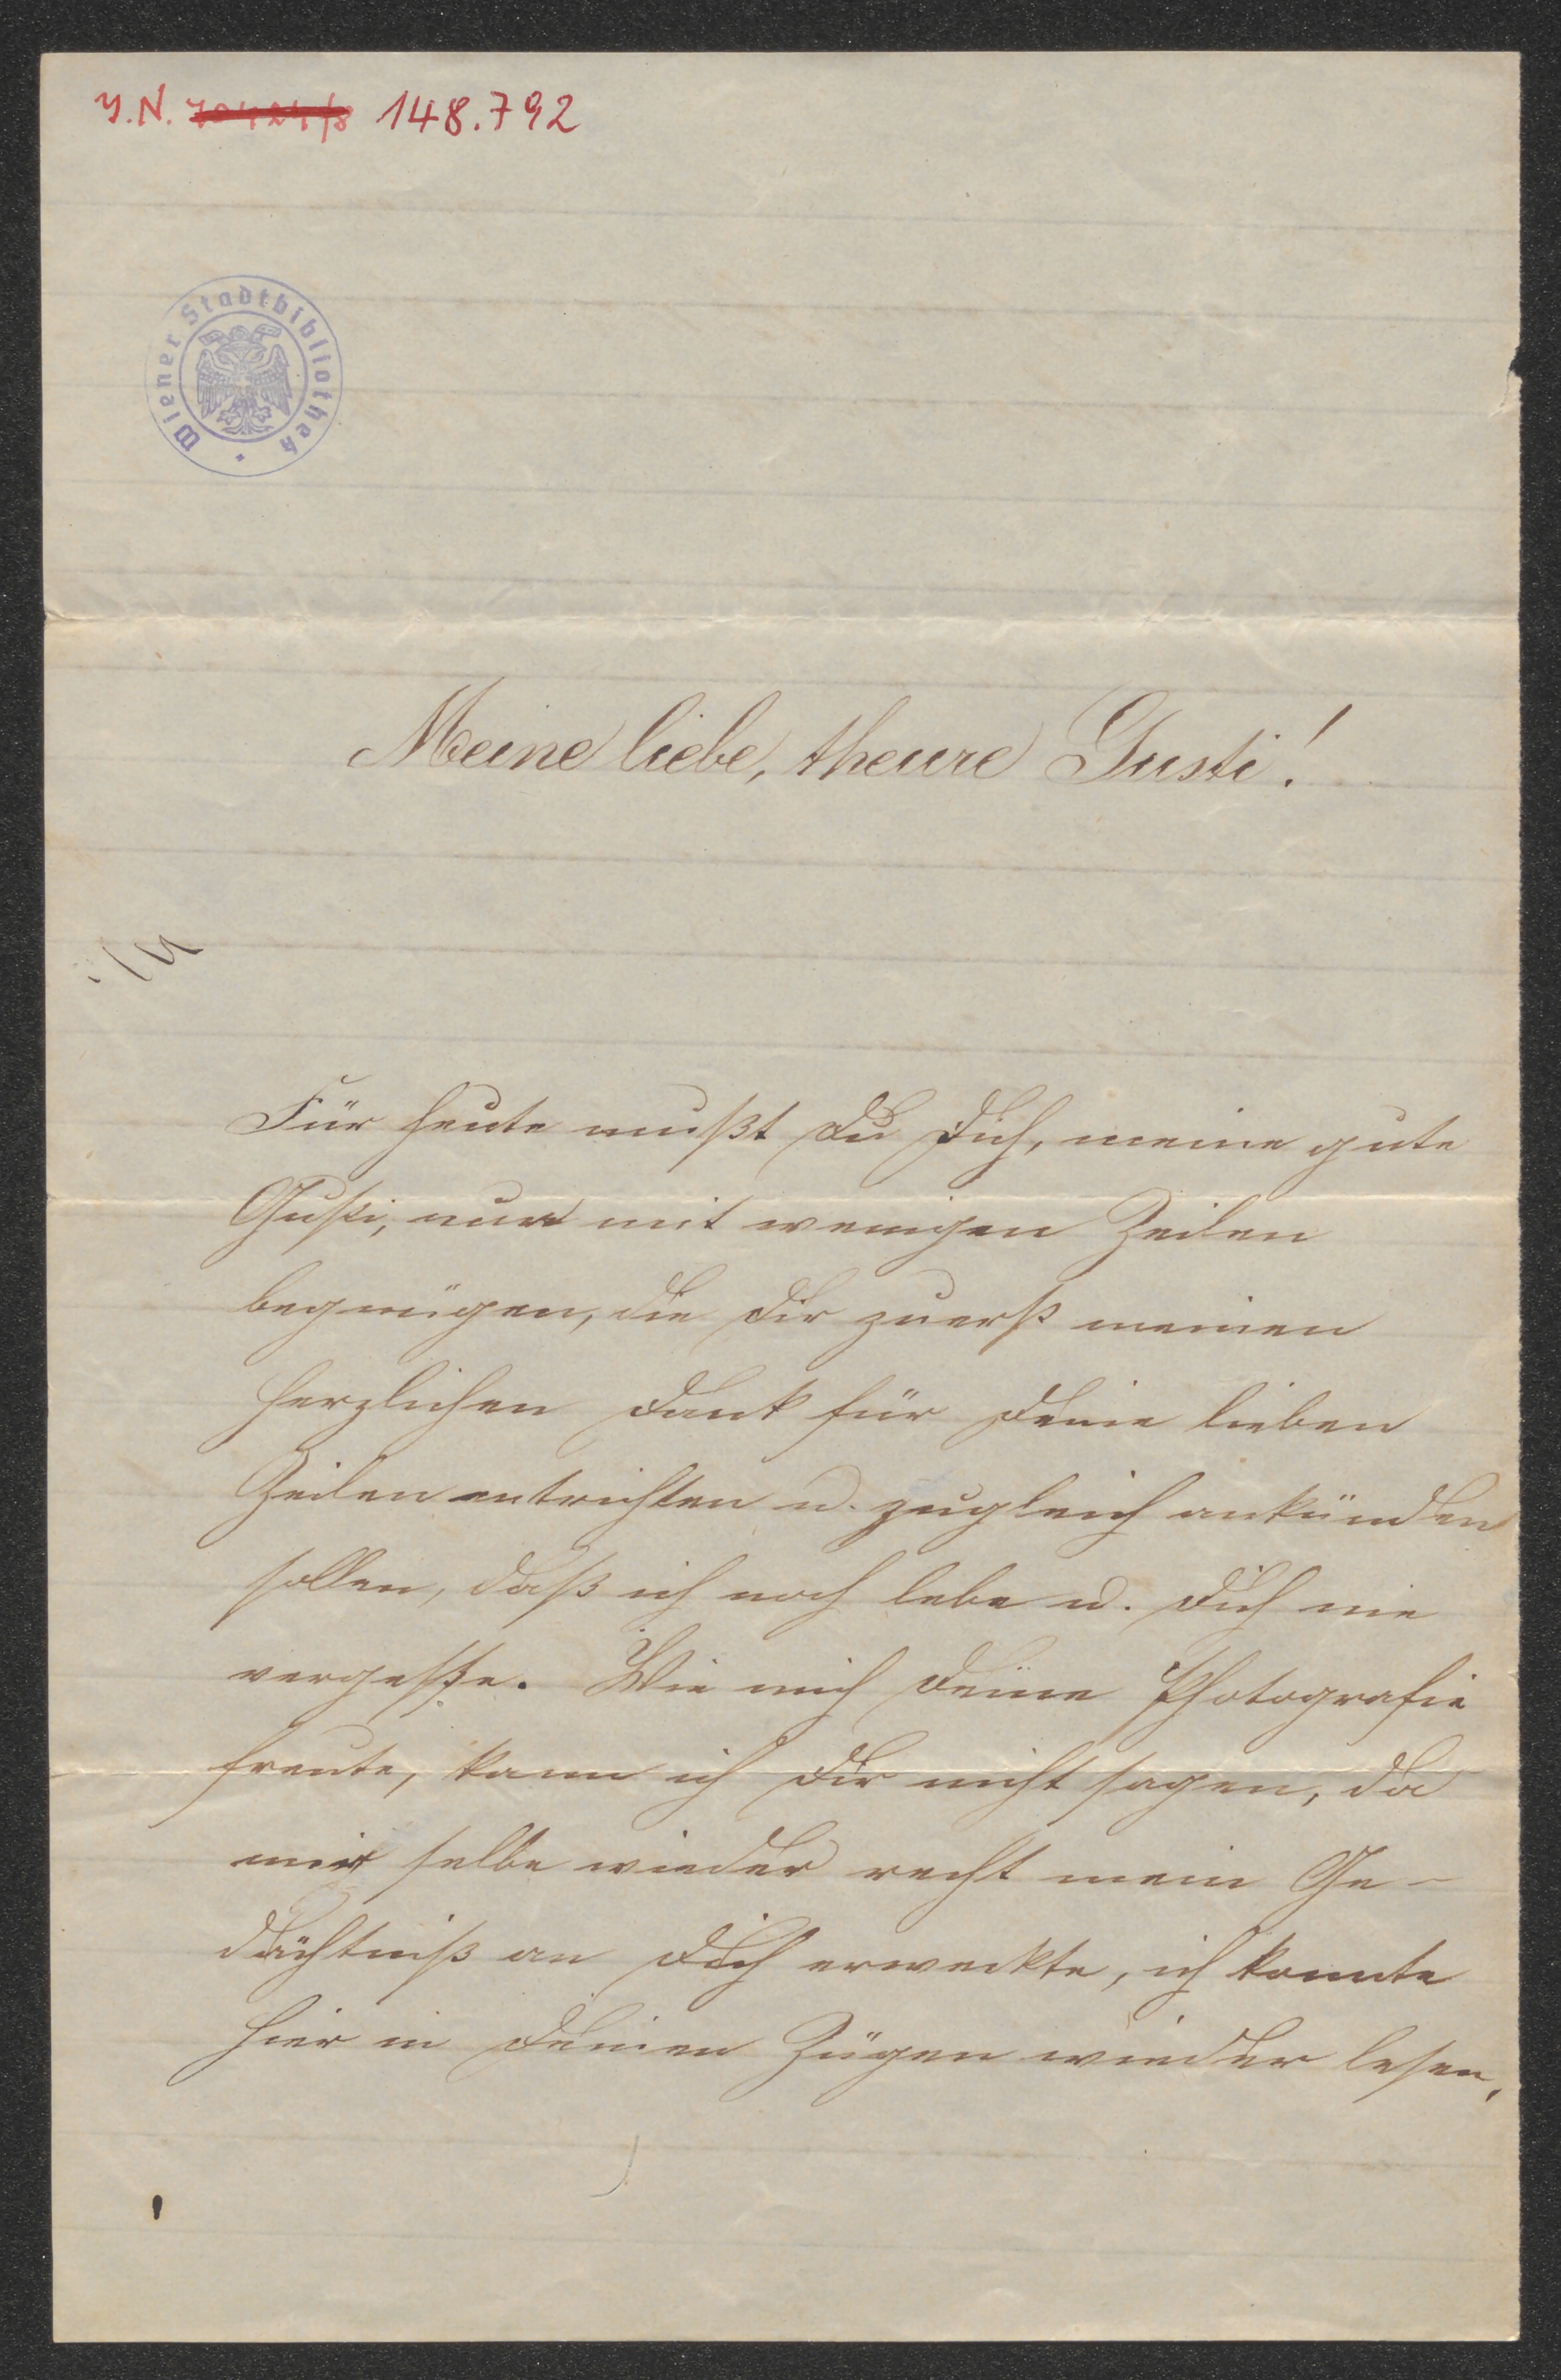 J.N. 148.792
Wiener Stadtbibliothek
Meine liebe, theure Gusti!
Für heute mußt Du Dich, meine gute
Gusti, nur mit wenigen Zeilen
begnügen, die Dir zuerst meinen
herzlichen Dank für Deine lieben
Zeilen entrichten u. zugleich ankünden
sollen, daß ich noch lebe u. Dich nie
vergeße. Wie mich Deine Photografie
freute, kann ich Dir nicht sagen, da
mir selbe wieder recht mein Ge-
dächtniß an Dich erweckte, ich konnte
hier in Deinen Zügen wieder lesen,